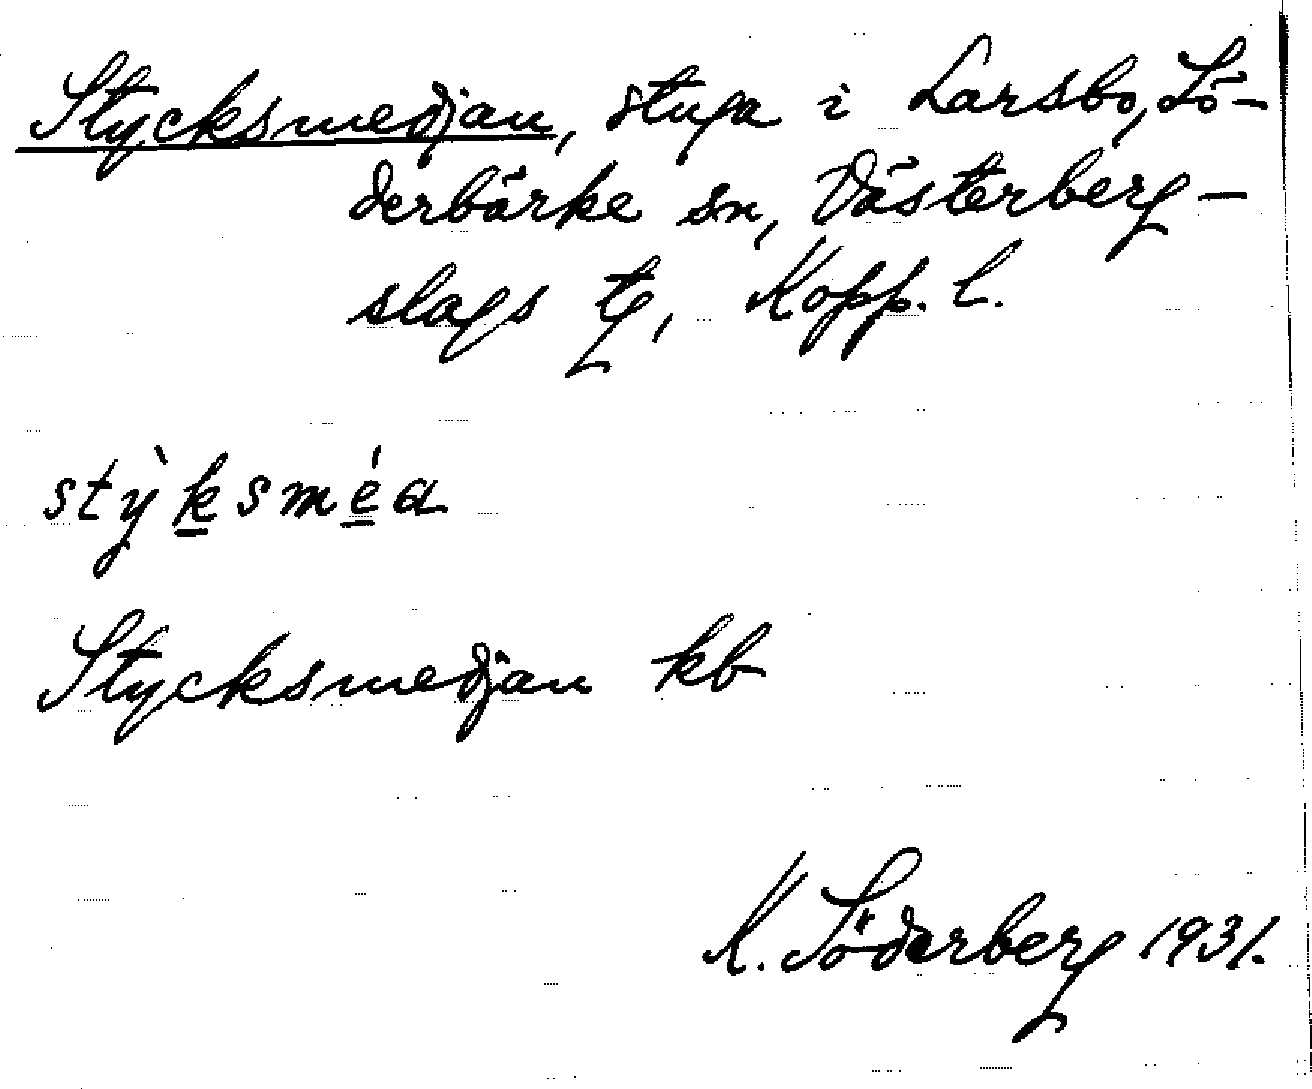 Stycksmedjan, stuga i Larsbo, Sö-
derbärke sn, Västerberg-
slags tg, Kopp. l.
sty̍̀ksméa
Stycksmedjan kb
K. Söderberg 1931.